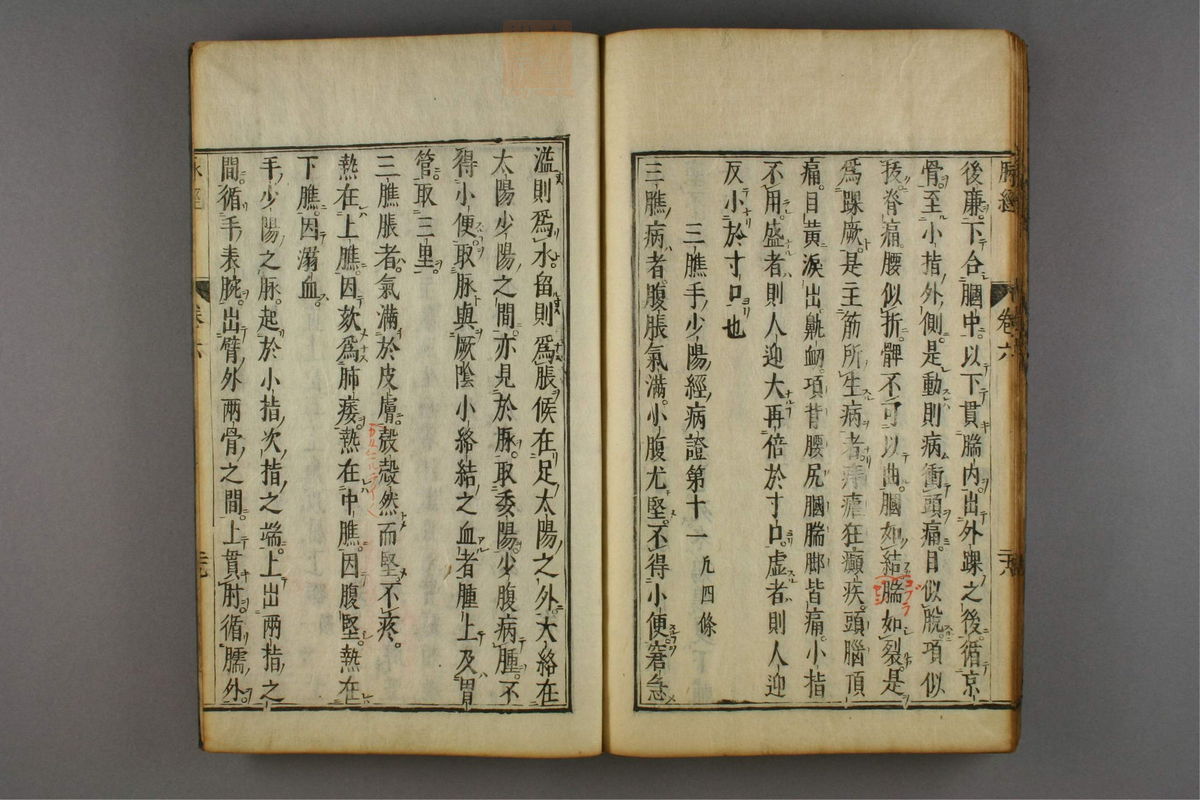 脉經 卷六
後廉下合膕中以下貫腨内出外踝之後循京
骨至小指外側是動則病衝頭痛目似脫項似
拔脊痛腰似折髀不可以曲膕如結腨如裂是
爲踝厥是主筋所生病者痔瘧狂癲疾頭腦頂
痛目黃淚出鼽衂項背腰尻膕腨脚皆痛小指
不用盛者則人迎大再倍於寸口虛者則人迎
反小於寸口也
三膲手少陽經病證第十一 凡四條
三膲病者腹脹氣滿小腹尤堅不得小便窘急
溢則爲水留則爲脹候在足太陽之外大絡在
太陽少陽之間亦見於脉取委陽少腹病腫不
得小便取脉與厥陰小絡結之血者腫上及胃
管取三里
三膲脹者氣滿於皮膚殼殼然而堅不疼
熱在上膲因欬爲肺痿熱在中膲因腹堅熱在
下膲因溺血
手少陽之脉起於小指次指之端上出兩指之
間循手表腕出臂外兩骨之間上貫肘循臑外
脉經 卷六